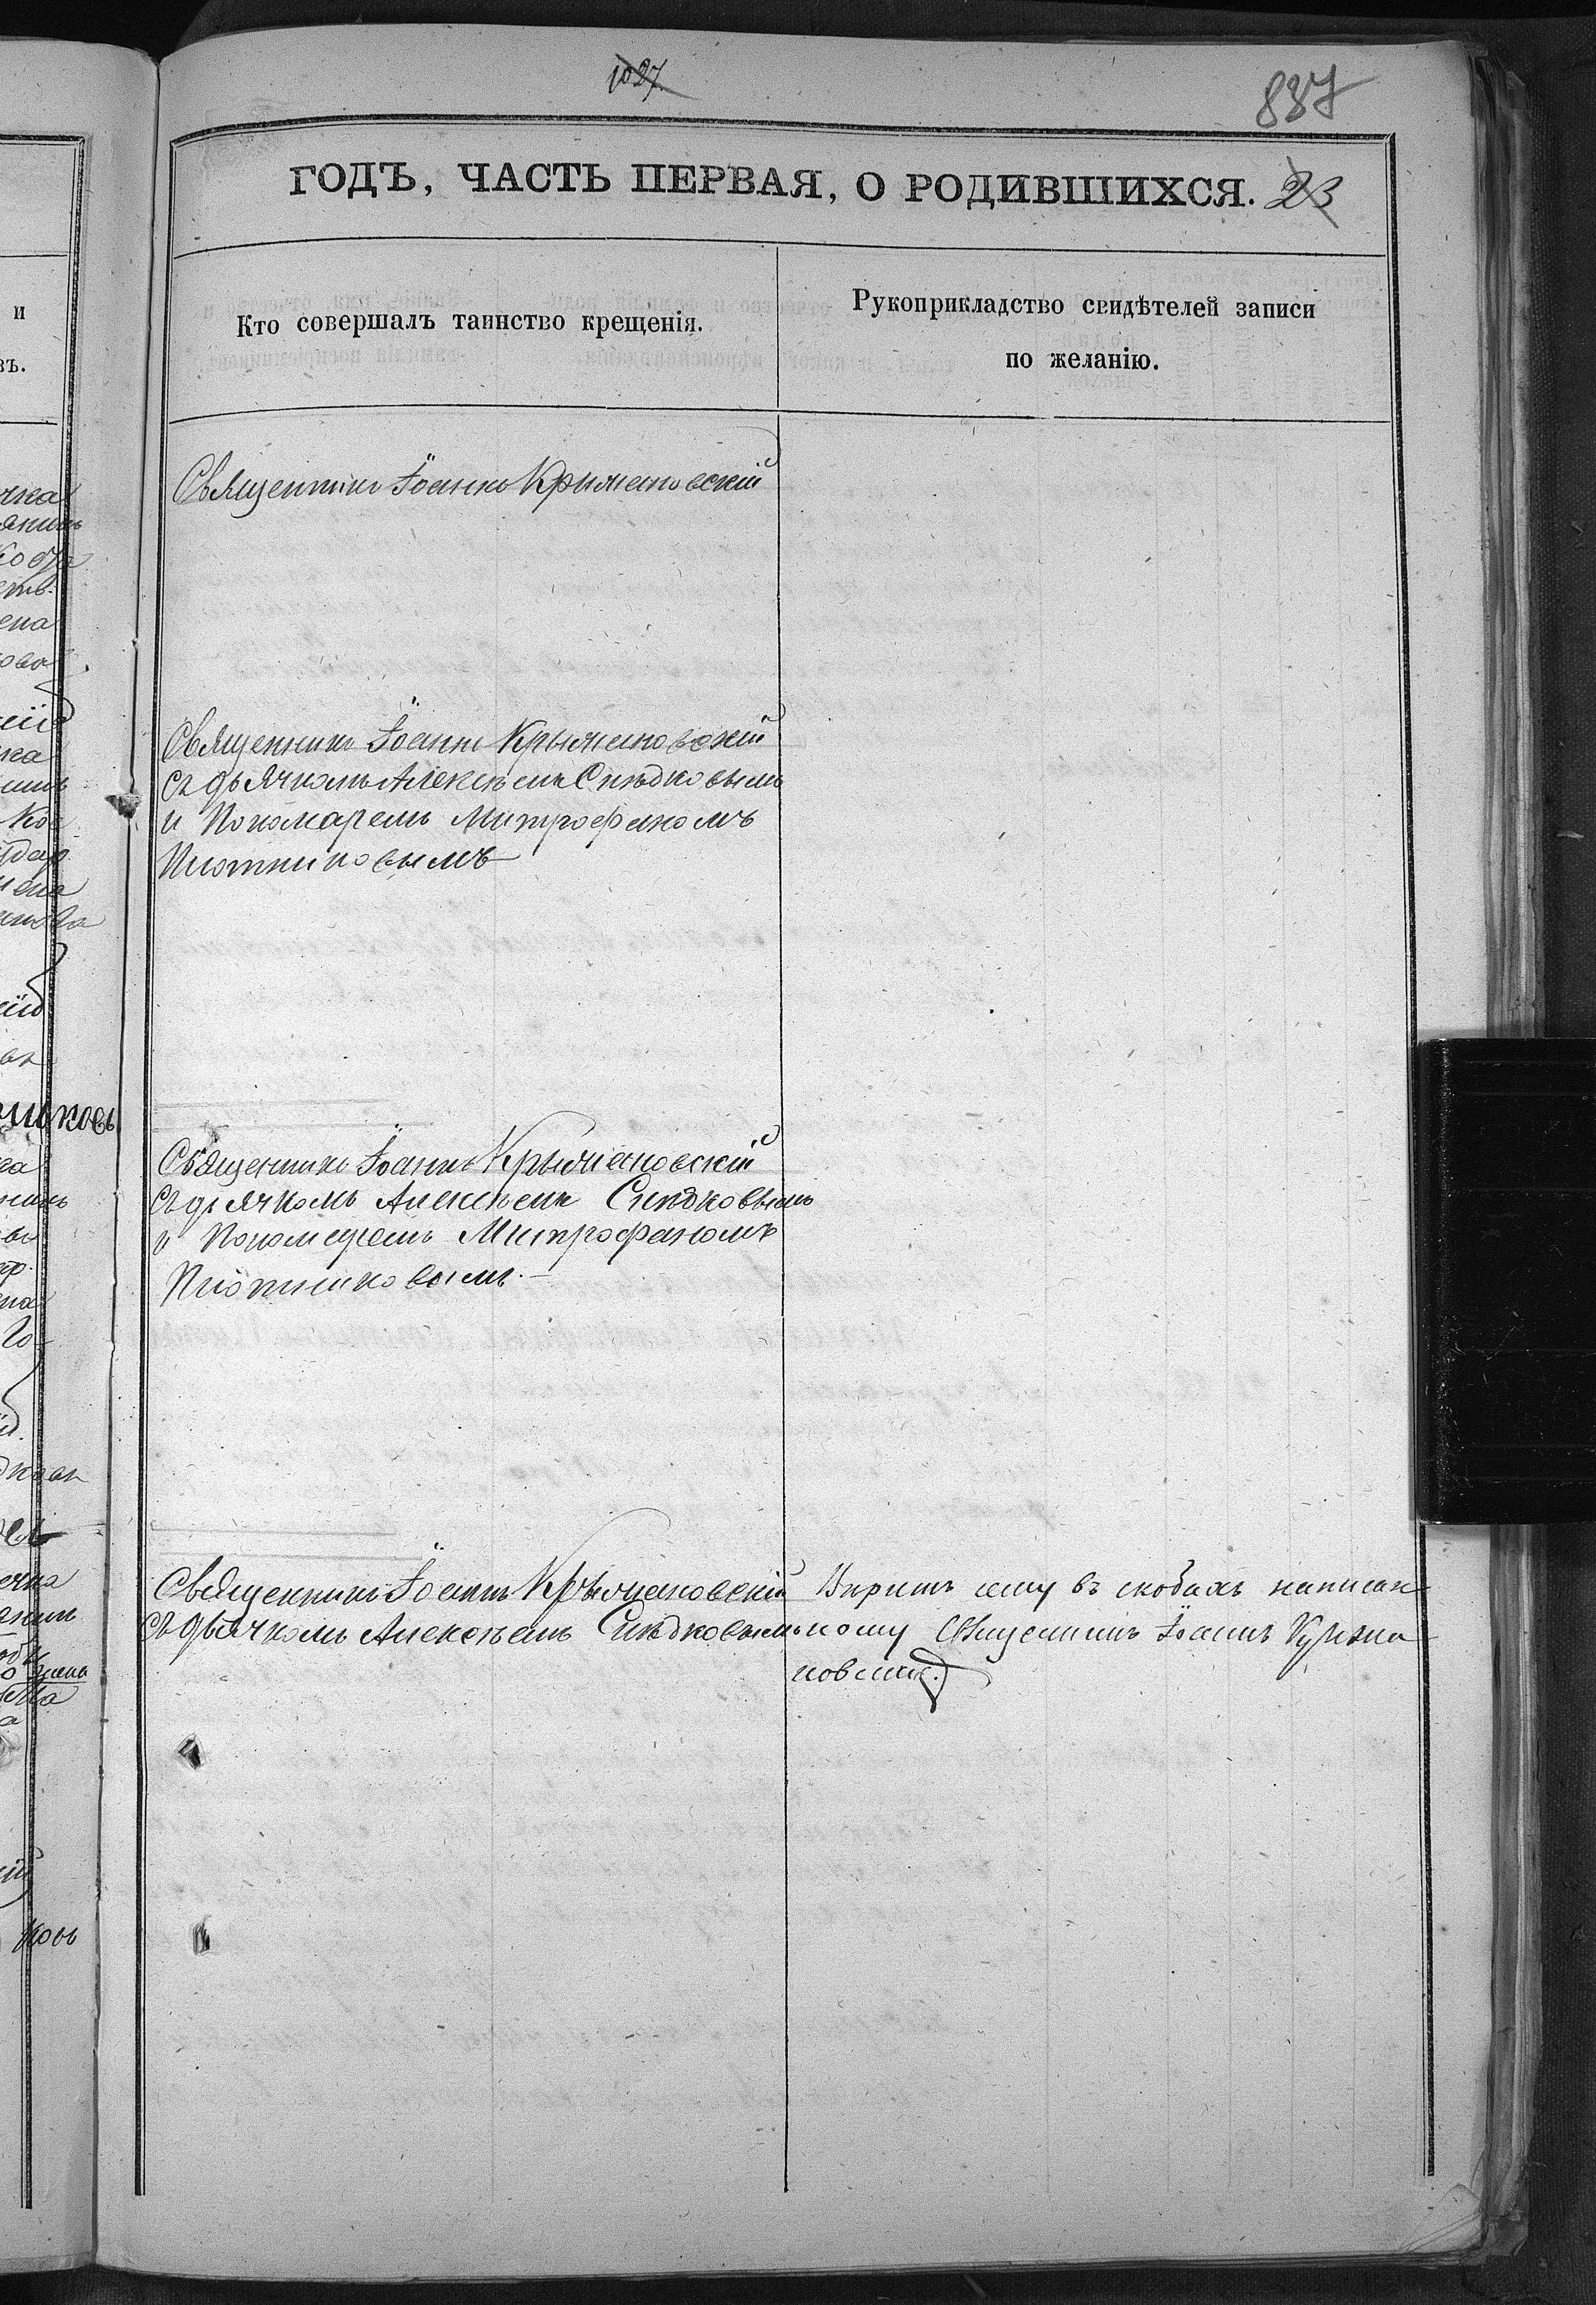 1027.
837
ГОДЪ, ЧАСТЬ ПЕРВАЯ, О РОДИВШИХСЯ. 23
Кто совершалъ таинство крещенія.
Рукоприкладство свидѣтелей записи
по желанію.
Священникъ Іоаннъ Крыжановскій
Священникъ Іоаннъ Крыжановскій
съ дьячкомъ Алексѣемъ Слѣдковымъ
и Пономаремъ Митрофаномъ
Плотниковымъ
Священникъ Іоаннъ Крыжановскій
съ дьячкомъ Алексѣемъ Слѣдковымъ
и Пономаремъ Митрофаномъ
Плотниковымъ.
Священникъ Іоаннъ Крыжановскій
съ дьячкомъ Алексѣемъ Слѣдковымъ
Вѣрить сему въ скобахъ написан-
ному Священникъ Іоаннъ Крыжа-
новскій.
и
въ.
ковъ